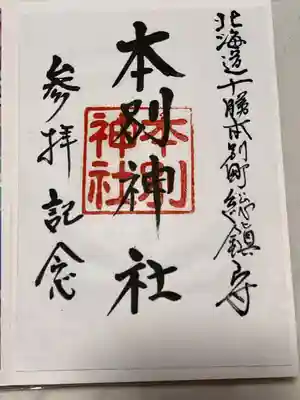 北海道十勝本別町総鎮守
本別神社
本別神社
参拝記念